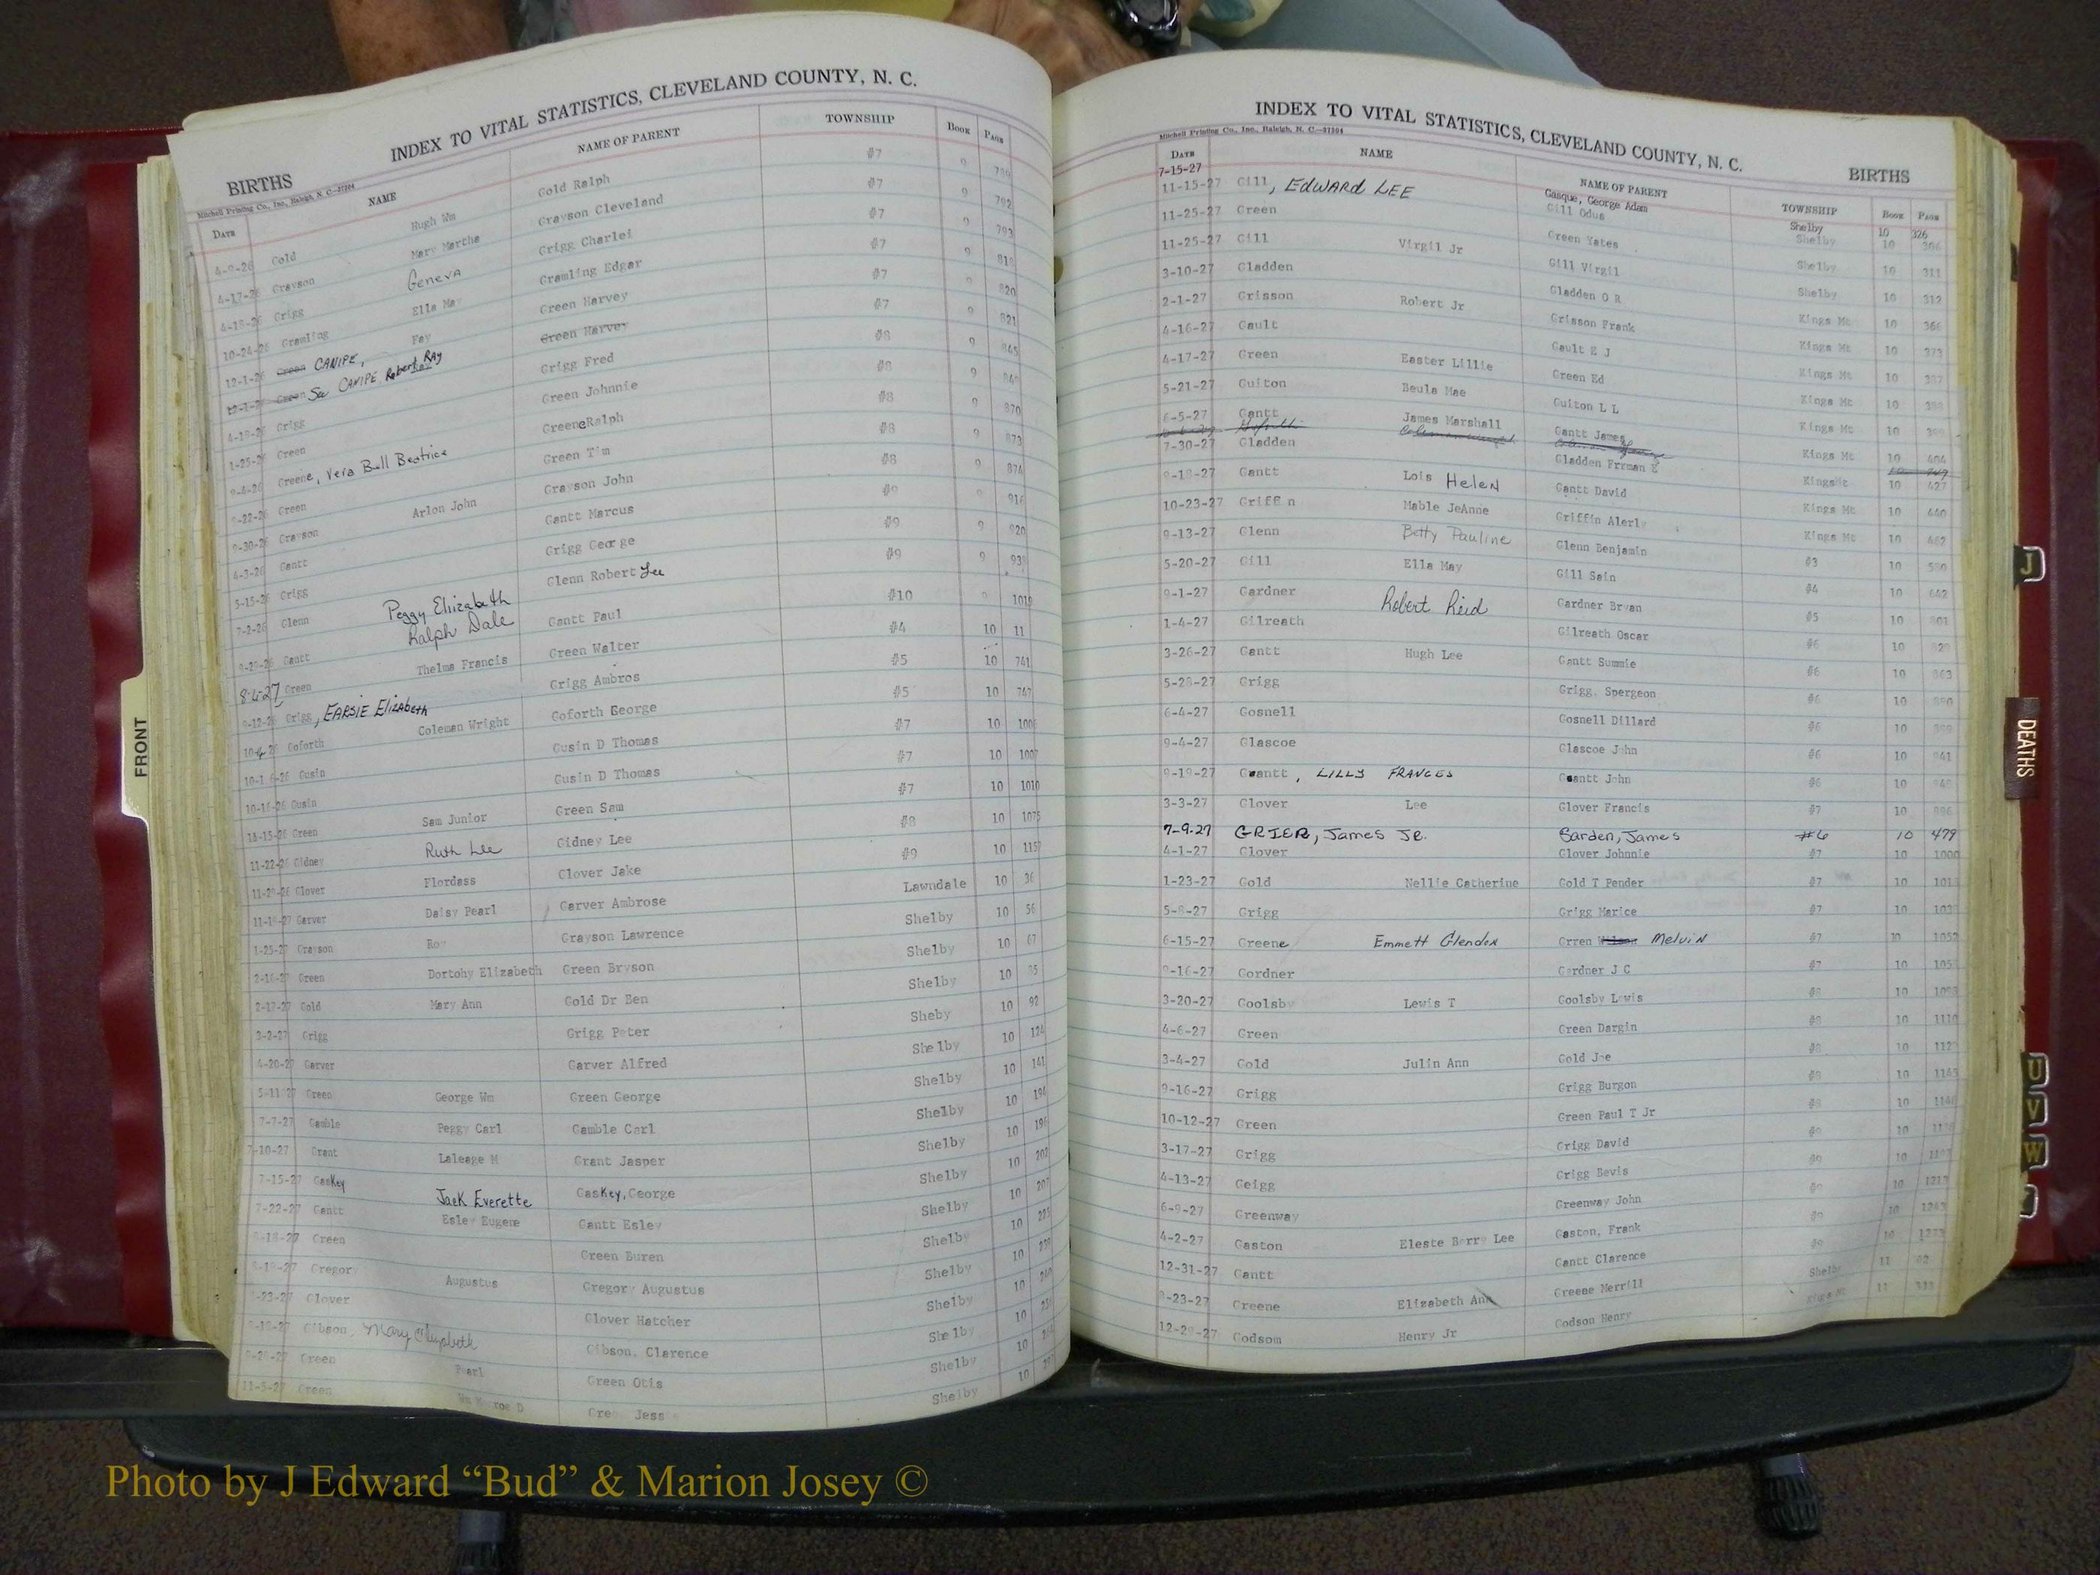 INDEX TO VITAL STATISTICS, CLEVELAND COUNTY, N. C.
BIRTHS
Mitchell Printing Co., Inc., Raleigh, N. C.—37204
DATE NAME NAME OF PARENT TOWNSHIP BOOK PAGE
4-9-26 Gold Hugh Wm Gold Ralph #7 9
4-17-26 Grayson Mary Martha Grayson Cleveland #7 9 792
4-18-26 Grigg Geneva Grigg Charlei #7 9 793
10-24-26 Gramling Ella May Gramling Edgar #7 9 818
12-1-26 Green CANIPE, Fay Green Harvey #7 9 820
12-1-26 Green See CANIPE, Robert Ray Green Harvey #7 9 821
4-18-26 Grigg Grigg Fred #8 9 845
1-25-26 Green Green Johnnie #8 9
9-4-26 Greene, Vera Bell Beatrice Greene Ralph #8 9 870
9-22-26 Green Green Tim #8 9 873
9-30-26 Grayson Arlon John Grayson John #8 9 874
4-3-26 Gantt Gantt Marcus #9 9 916
5-15-26 Grigg Grigg George #9 9 920
7-2-26 Glenn Peggy Elizabeth Glenn Robert Lee #9 9
9-29-26 Gantt Ralph Dale Gantt Paul #10 9 1019
8-6-27 Green Thelma Francis Green Walter #4 10 11
9-12-26 Grigg, EARSIE Elizabeth Grigg Ambros #5 10 741
10-6-26 Goforth Coleman Wright Goforth George #5 10 747
10-16-26 Gusin Gusin D Thomas #7 10 1006
10-16-26 Gusin Gusin D Thomas #7 10 1007
14-15-26 Green Sam Junior Green Sam #7 10 1010
11-22-26 Gidney Ruth Lee Gidney Lee #8 10 1075
11-29-26 Glover Flordass Glover Jake #9 10 1157
11-18-27 Garver Daisy Pearl Garver Ambrose Lawndale 10 36
1-25-27 Grayson Roy Grayson Lawrence Shelby 10 56
2-16-27 Green Dortohy Elizabeth Green Bryson Shelby 10 67
2-17-27 Gold Mary Ann Gold Dr Ben Shelby 10
3-2-27 Grigg Grigg Peter Sheby 10 92
4-20-27 Garver Garver Alfred Shelby 10 124
5-11-27 Green George Wm Green George Shelby 10 141
7-7-27 Gamble Peggy Carl Gamble Carl Shelby 10 194
7-10-27 Grant Laleage M Grant Jasper Shelby 10
7-15-27 Gaskey Jack Everette Gaskey, George Shelby 10 202
7-22-27 Gantt Esley Eugene Gantt Esley Shelby 10 207
8-18-27 Green Green Buren Shelby 10
8-19-27 Gregory Augustus Gregory Augustus Shelby 10
Glover Glover Hatcher Shelby 10
Gibson, Mary Elizabeth Gibson, Clarence Shelby 10
Green Pearl Green Otis Shelby 10
11-5-27 Green Jess Shelby 10
INDEX TO VITAL STATISTICS, CLEVELAND COUNTY, N. C.
Mitchell Printing Co., Inc., Raleigh, N. C.—37204
BIRTHS
DATE NAME NAME OF PARENT TOWNSHIP BOOK PAGE
7-15-27 Gasque, George Adam Shelby 10 326
11-15-27 Gill, EDWARD LEE Gill Odus Shelby 10 306
11-25-27 Green Green Yates Shelby 10 311
11-25-27 Gill Virgil Jr Gill Virgil Shelby 10 312
3-10-27 Gladden Gladden O R Kings Mt 10 366
2-1-27 Grisson Robert Jr Grisson Frank Kings Mt 10 373
4-16-27 Gault Gault E J Kings Mt 10 387
4-17-27 Green Easter Lillie Green Ed Kings Mt 10
5-21-27 Guiton Beula Mae Guiton L L Kings Mt 10
6-5-27 Gantt James Marshall Gantt James Kings Mt 10 404
7-30-27 Gladden Gladden Frrman E KingsMt 10 427
9-18-27 Gantt Lois Helen Gantt David Kings Mt 10 440
10-23-27 Griffin Mable JeAnne Griffin Alerly Kings Mt 10 462
9-13-27 Glenn Betty Pauline Glenn Benjamin #3 10 580
5-20-27 Gill Ella May Gill Sain #4 10 642
9-1-27 Gardner Robert Reid Gardner Bryan #5 10 801
1-4-27 Gilreath Gilreath Oscar #6 10 829
3-26-27 Gantt Hugh Lee Gantt Summie #6 10 863
5-28-27 Grigg Grigg, Spergeon #6 10
6-4-27 Gosnell Gosnell Dillard #6 10
9-4-27 Glascoe Glascoe John #6 10 941
9-19-27 Gantt, LILLY FRANCES Gantt John #6 10
3-3-27 Glover Lee Glover Francis #7 10 996
7-9-27 GRIER, James JR. Barden, James #6 10 479
4-1-27 Glover Glover Johnnie #7 10 1000
1-23-27 Gold Nellie Catherine Gold T Pender #7 10 1018
5-8-27 Grigg Grigg Marice #7 10
6-15-27 Greene Emmett Glendon Grren Melvin #7 10 1052
9-16-27 Gordner Gardner J C #7 10
3-20-27 Goolsby Lewis T Goolsby Lewis #8 10
4-6-27 Green Green Dargin #8 10 1110
3-4-27 Gold Julin Ann Gold Joe #8 10
9-16-27 Grigg Grigg Burgon #8 10
10-12-27 Green Green Paul T Jr #8 10
3-17-27 Grigg Grigg David #9 10
4-13-27 Geigg Grigg Bevis #9 10 1213
6-9-27 Greenway Greenway John #9 10 1243
4-2-27 Gaston Eleste Berry Lee Gaston, Frank #9 10 1273
12-31-27 Gantt Gantt Clarence Shelby 11
9-23-27 Greene Elizabeth Ann Greene Merrill Kings Mt 11
12-29-27 Godsom Henry Jr Godson Henry
FRONT
J
DEATHS
U
V
W
Photo by J Edward “Bud” & Marion Josey ©